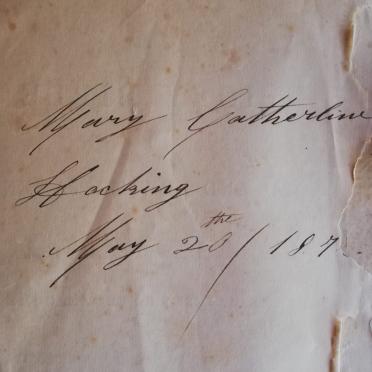 Mary Catherline
Hocking
May 20the / 187